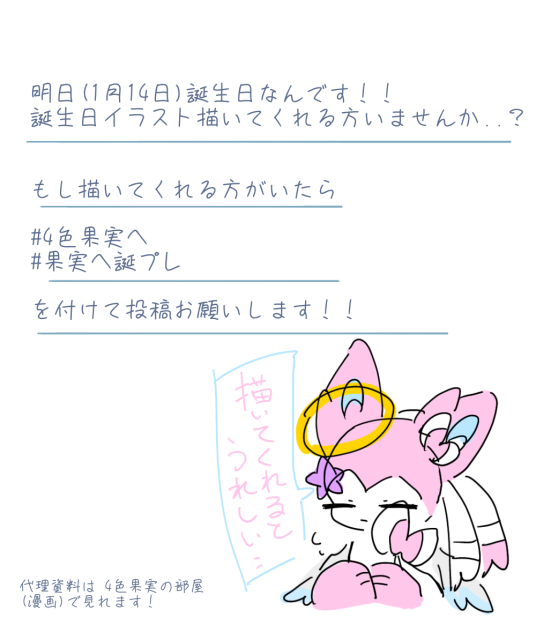 明日(1月14日)誕生日なんです！！
誕生日イラスト描いてくれる方いませんか..？
もし描いてくれる方がいたら
#4色果実へ
#果実へ誕プレ
を付けて投稿お願いします！！
描いてくれると
うれしい…
代理資料は 4色果実の部屋
(漫画)で見れます！